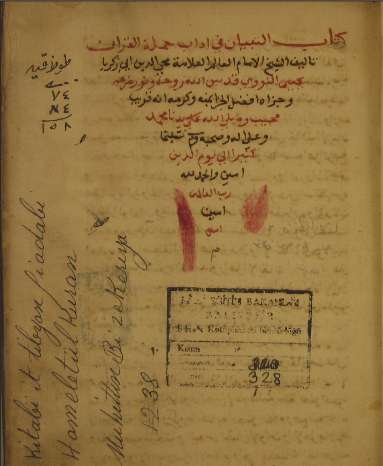 كتاب التبيان في اداب حملة القران
تاليف الشيخ الامام العالم العلامة محيي الدين ابي زكريا
يحيى النووي قدس الله روحه ونور ضريحه
وجزاه افضل الجزا بمنه وكرمه انه قريب
مجيب وصلى الله على سيدنا محمد
وعلى اله وصحبه وسلم تسليما
كثيرا الى يوم الدين
امين والحمد لله
رب العالمين
امين
امين
م
٧٤
٨٤
١٥٨
Kitabü't tibyan fi adabi
Hameletül Kur'an
Muhittin Bi Zekeriya
1238
BAKANLIĞI
Kısım
328